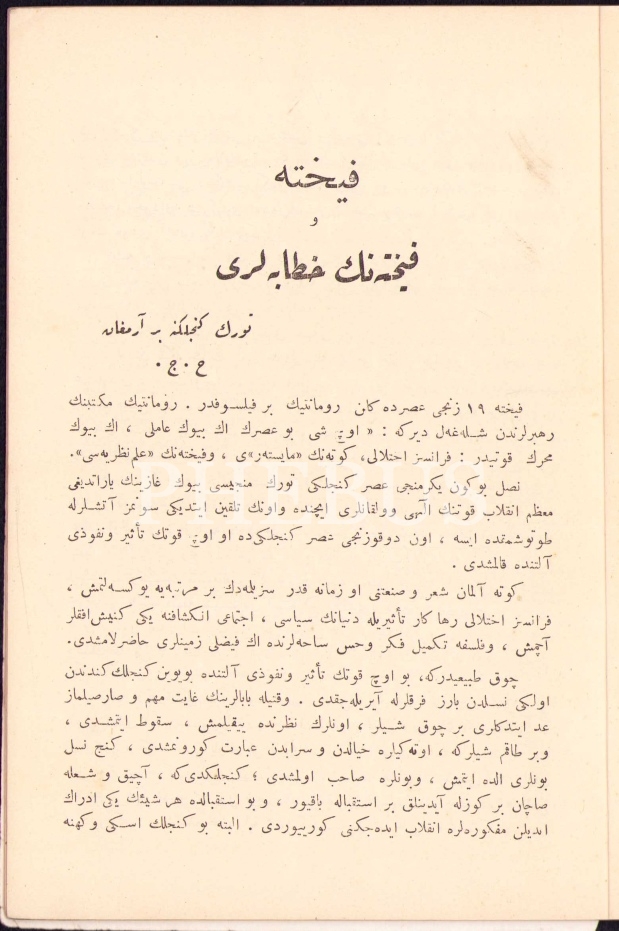 فيخته
و
فيخته‌نك خطابه‌لری
تورك كنجلكنه بر آرمغان
ح . ج .
فيخته ١٩ زنجی عصرده كلن رومانتيك بر فيلسوفدر . رومانتيك مكتبنك
رهبرلرندن شله‌غه‌ل ديركه : « اوچ شی بو عصرك اك بيوك عاملی ، اك بيوك
محرك قوتيدر : فرانسز اختلالی، كوته‌نك «مايستهر»ی ، وفيخته‌نك «علم‌نظريه‌سی».
نصل بوكون يكرمنجی عصر كنجلكی تورك منجيسی بيوك غازينك ياراتديغی
معظم انقلاب قوتنك آلهی وولقانلری ايچنده واونك تلقين ايتديكی سونمز آتشلرله
طوتوشمقده ايسه ، اون دوقوزنجی عصر كنجلكی‌ده او اوچ قوتك تأثير ونفوذی
آلتنده قالمشدی .
كوته آلمان شعر و صنعتنی او زمانه قدر سزيله‌مدك بر مرتبه‌يه يوكسه‌لتمش ،
فرانسز اختلالی رها كار تأثيريله دنيانك سياسی ، اجتماعی انكشافنه يكی كنيش‌افقلر
آچمش ، وفلسفه تكميل فكر وحس ساحه‌لرنده اك فيضلی زمينلری حاضرلامشدی.
چوق طبيعيدركه، بو اوچ قوتك تأثير ونفوذی آلتنده بويوين كنجلك كندندن
اولكی نسلدن بارز فرقلرله آيريله‌جقدی . وقتيله بابالرينك غايت مهم و صارصيلماز
عد ايتدكلری بر چوق شيلر ، اونلرك نظرنده ييقيلمش ، سقوط ايتمشدی ،
وبر طاقم شيلركه ، اوته‌كيلره خيالدن و سرابدن عبارت كورونمشدی ، كنج نسل
بونلری الده ايتمش ، وبونلره صاحب اولمشدی ؛ كنجلكدی‌كه ، آچيق و شعله
صاچان بر كوزله آيدينلق بر استقباله باقيور ، و بو استقبالده هر شيئك يكی ادراك
ايديلن مفكوره‌لره انقلاب ايده‌جكنی كورييوردی . البته بو كنجلك اسكی وكهنه